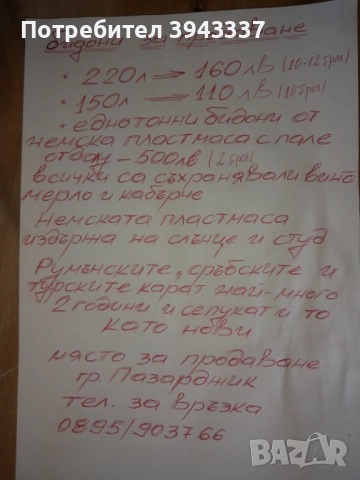 Потребител 3943337
бидони за продаване
• 220л ⇒ 160лв (10-12 броя)
• 150л ⇒ 110лв (10 броя)
• еднотонни бидони от
немска пластмаса с пале
отдолу - 500лв (2 броя)
всички са съхранявали вино
мерло и каберне
Немската пластмаса
издържа на слънце и студ
Румънските, сръбските и
турските карат най-много
2 години и се пукат и то
като нови
място за продаване
гр. Пазарджик
тел. за връзка
0895/903766
BAZAR